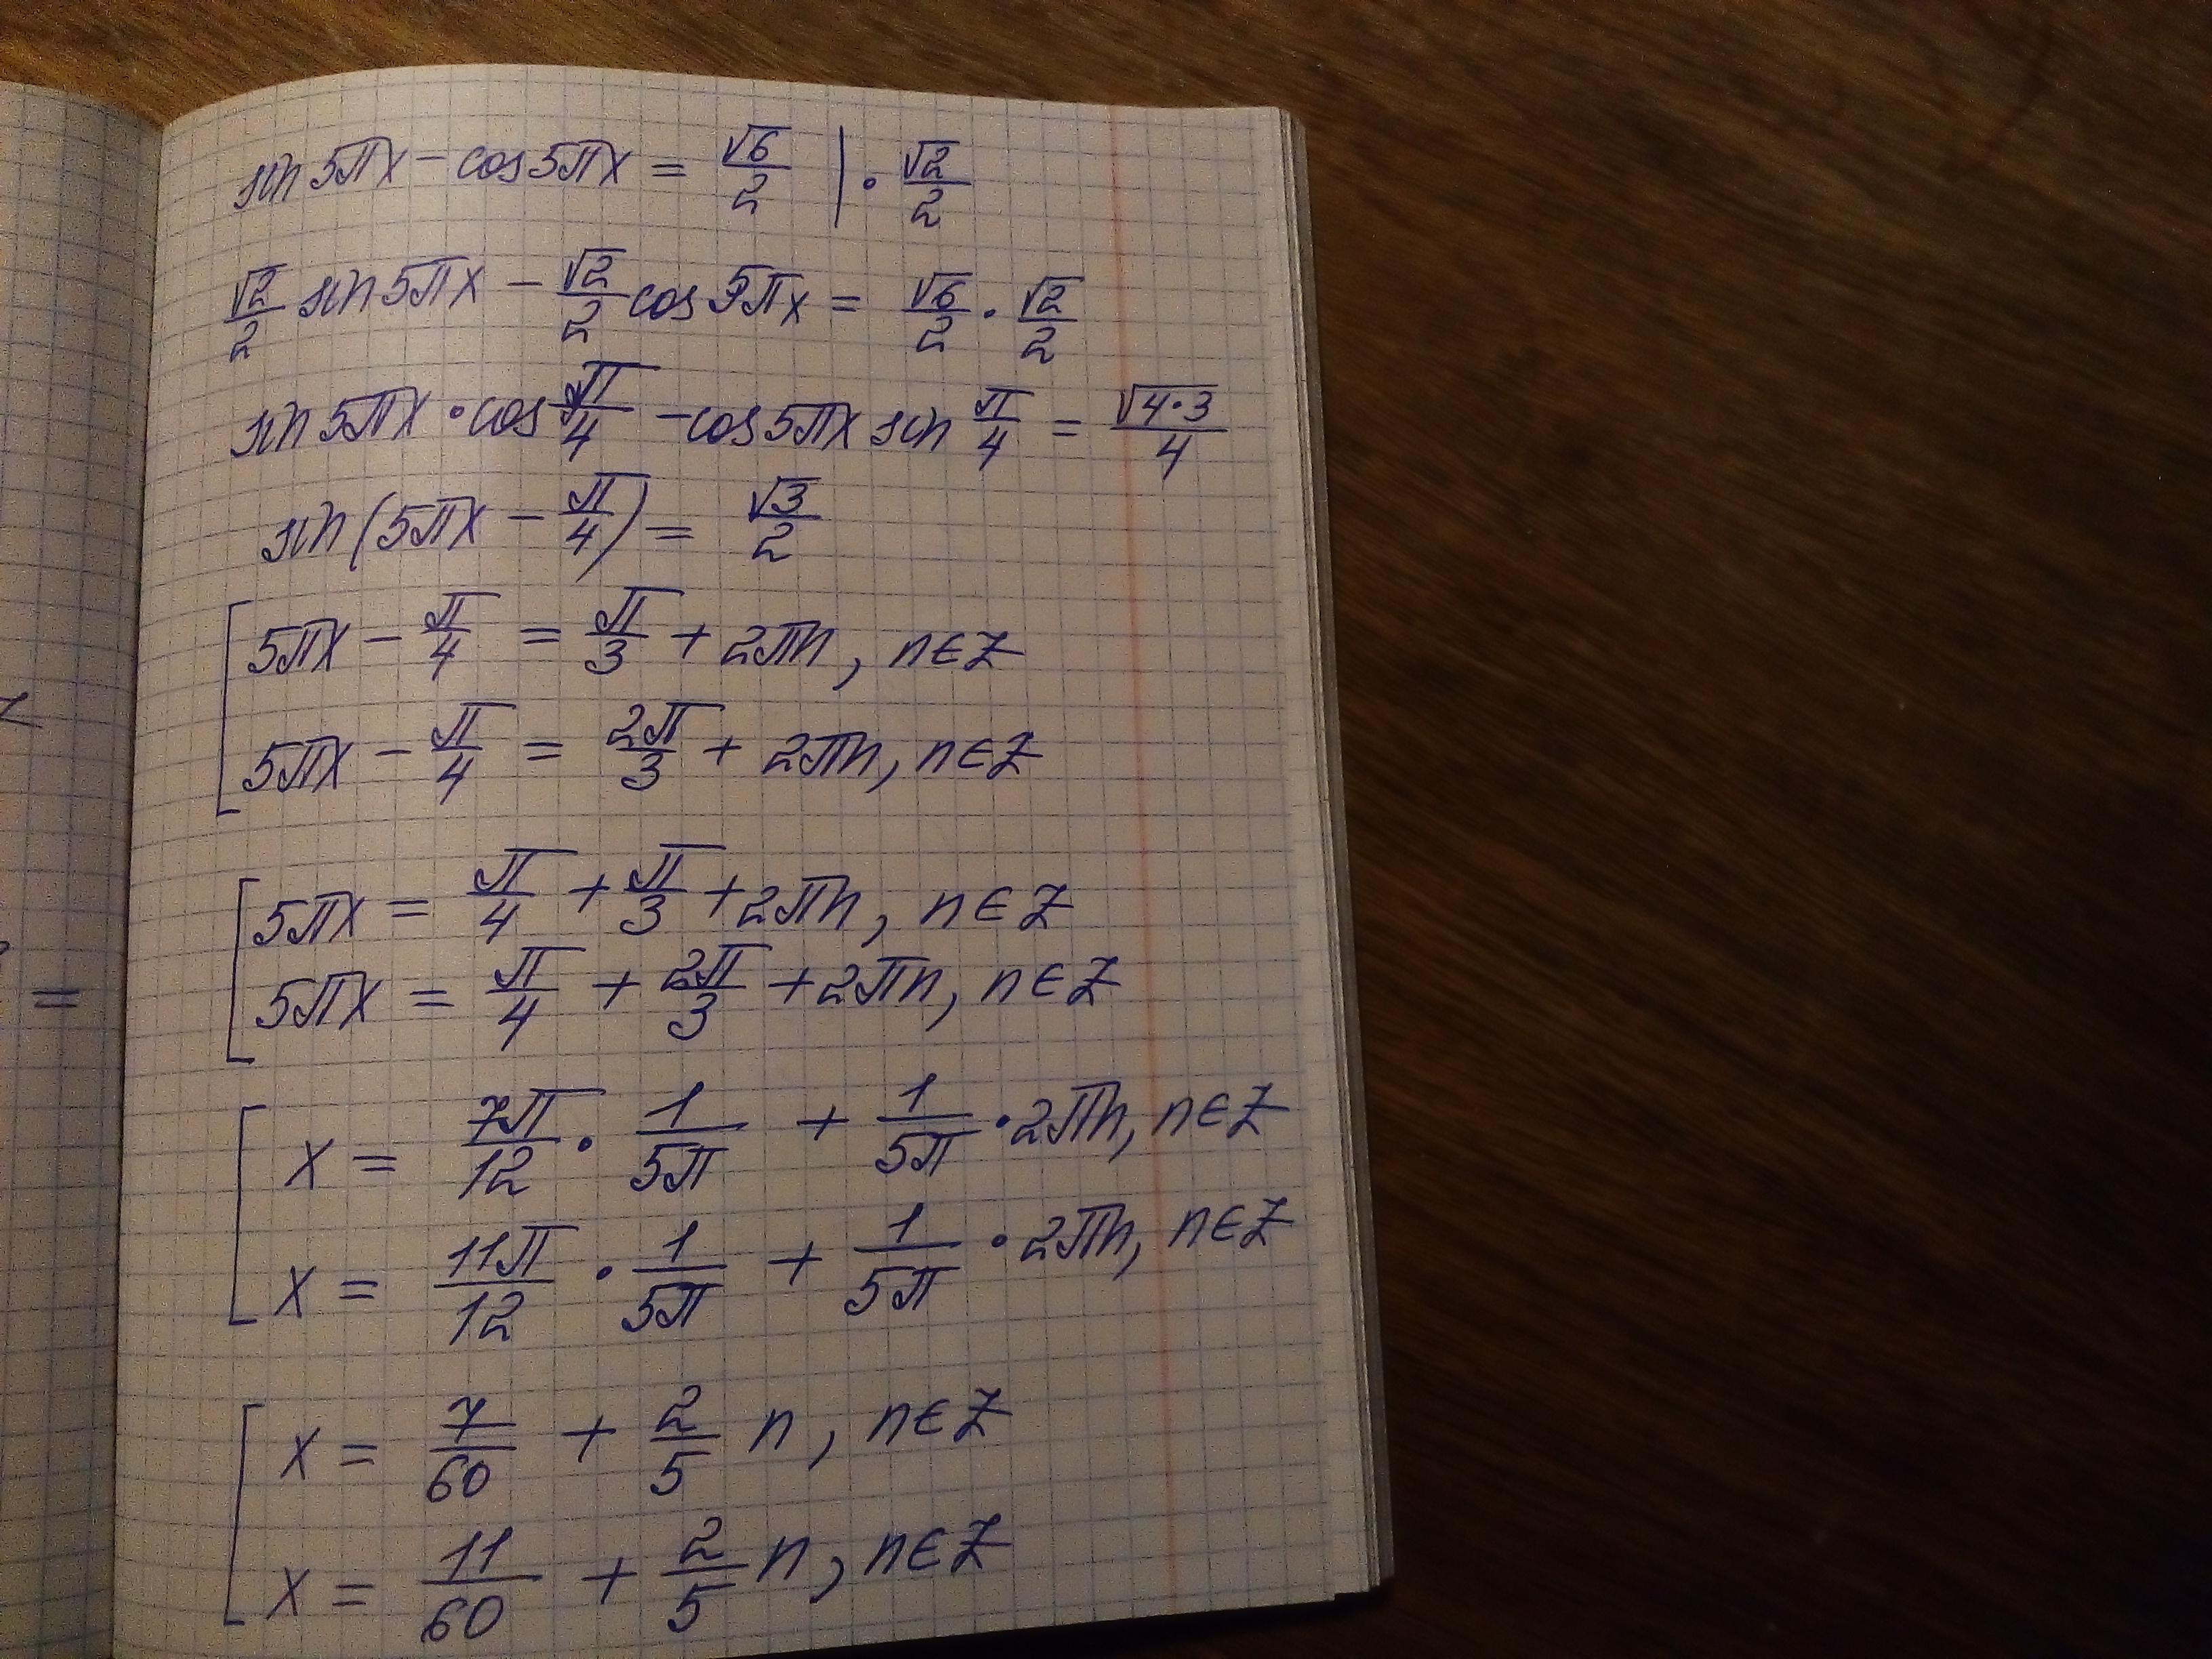 sin 5πx − cos 5πx = √6/2 | · √2/2
√2/2 sin 5πx − √2/2 cos 5πx = √6/2 · √2/2
sin 5πx · cos π/4 − cos 5πx sin π/4 = √(4·3)/4
sin(5πx − π/4) = √3/2
[ 5πx − π/4 = π/3 + 2πn, n∈Z
5πx − π/4 = 2π/3 + 2πn, n∈Z
[ 5πx = π/4 + π/3 + 2πn, n∈Z
5πx = π/4 + 2π/3 + 2πn, n∈Z
[ x = 7π/12 · 1/5π + 1/5π · 2πn, n∈Z
x = 11π/12 · 1/5π + 1/5π · 2πn, n∈Z
[ x = 7/60 + 2/5 n, n∈Z
x = 11/60 + 2/5 n, n∈Z
=